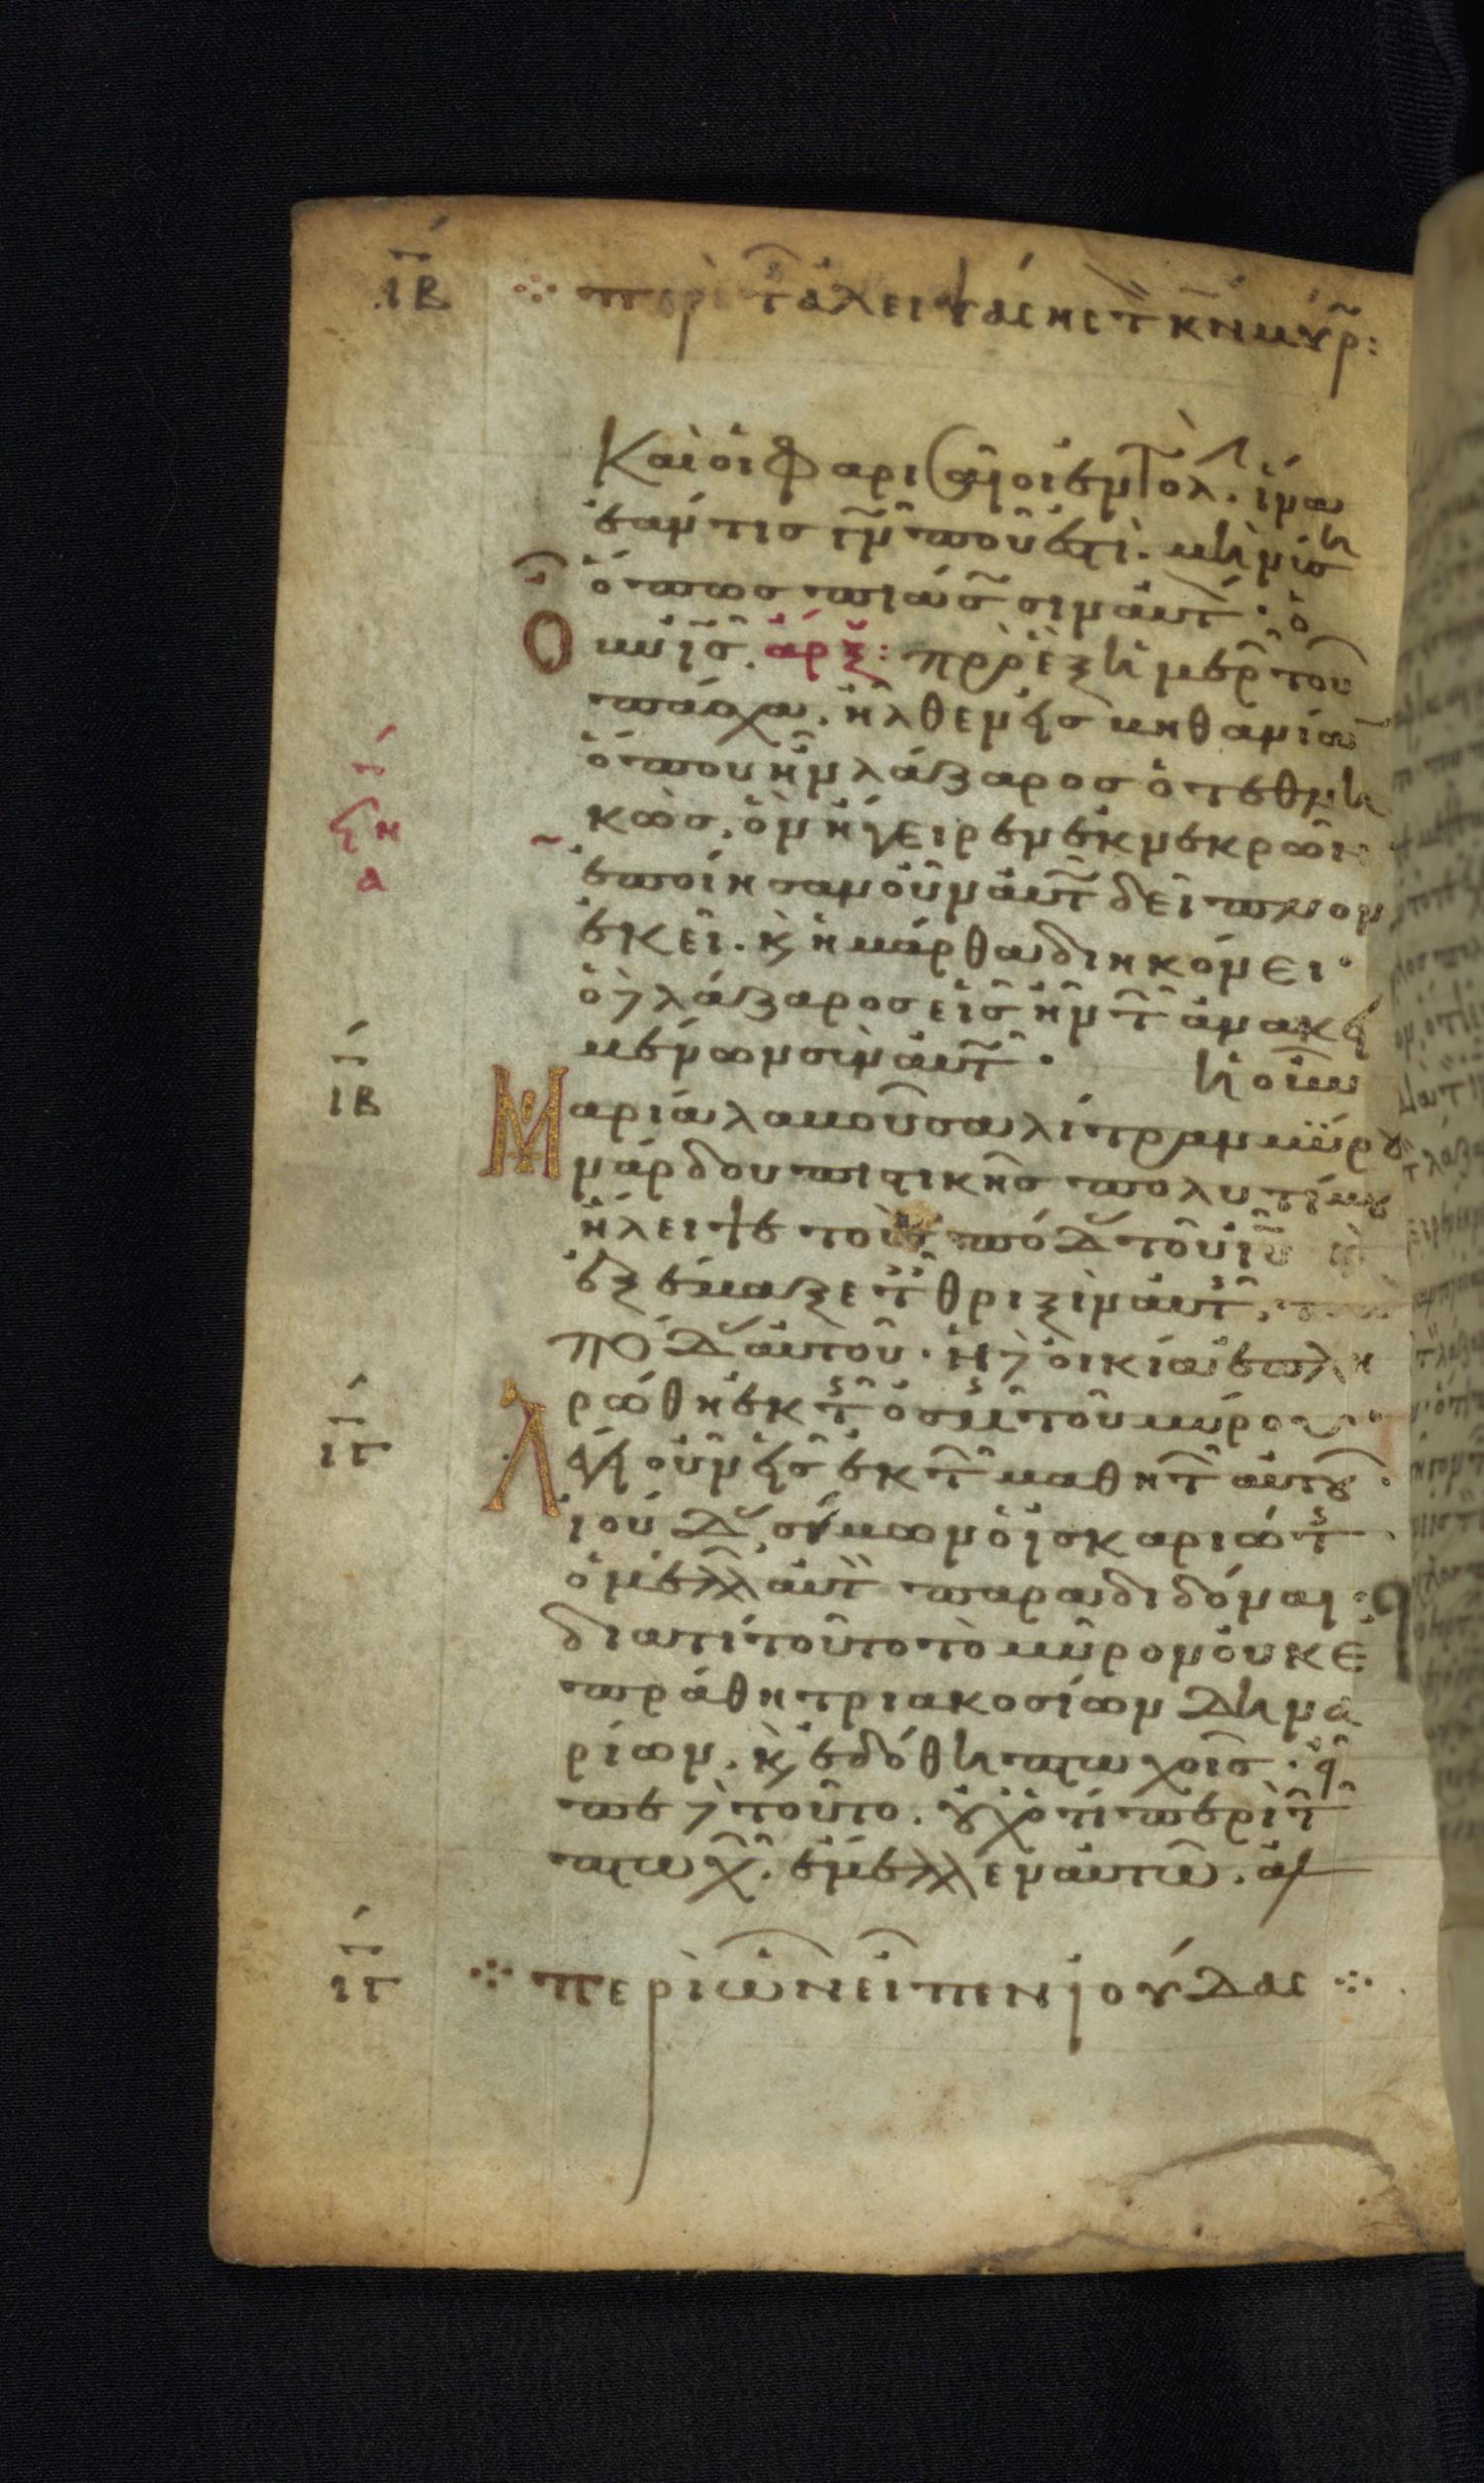 ΙΒ περὶ τ ἀλειψάσης τ κν μύρ:
Καὶ οἱ Φαρισαῖοι ἐντολ. ἵνα
ἐάν τις γν ποῦ ἐστὶ. μηνύσῃ
ὅπως πιάσ σιν αυτ. ὁ
Ο μὲν ισ. ἀρχ: πρὸ ἓξ ἡμερ τοῦ
πάσχα. ἦλθεν ις βηθανίαν
ὅπου ἦν λάζαρος ὁ τεθνη
κὼς. ὃν ἤγειρεν ἐκ νεκρῶν
ἐποίησαν οὖν αὐτ δεῖπνον
ἐκεῖ. κ ἡ μάρθα διηκόνει.
ὁ λάζαρος εἷς ἦν τ ἀνακει
μένων σὺν αὐτ. ἡ οὖν
ΙΒ Μαρία λαβοῦσα λίτραν μύρου
νάρδου πιστικῆς πολυτίμου
ἤλειψε τοὺς πόδ τοῦ ιυ
ἐξέμαξε τ θριξὶν αὐτ.
πόδ αὐτοῦ. ἡ οἰκία ἐπλη
ρώθη ἐκ τ ὀσμ τοῦ μύρου.
ΙΓ Λέγει οὖν εἷς ἐκ τ μαθητ αὐτοῦ.
ἰούδ σίμων ὁ ἰσκαριώτ.
ὁ μέλλ αὐτ παραδιδόναι.
διατί τοῦτο τὸ μύρον οὐκ ἐ
πράθη τριακοσίων δηνα
ρίων. κ ἐδόθη πτωχοῖς. εἶ
πε τοῦτο. οὐχ ὅτι περὶ τ
πτωχ. ἔμελλεν αὐτῶ. ἀλ
ΙΓ περὶ ὧν εἶπεν ἰούδας